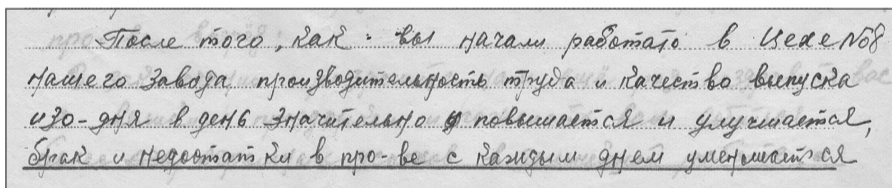 После того, как вы начали работать в Цехе №8
нашего завода, производительность труда и качество выпуска
изо-дня в день значительно повышается и улучшается,
брак и недостатки в про-ве с каждым днем уменьшается